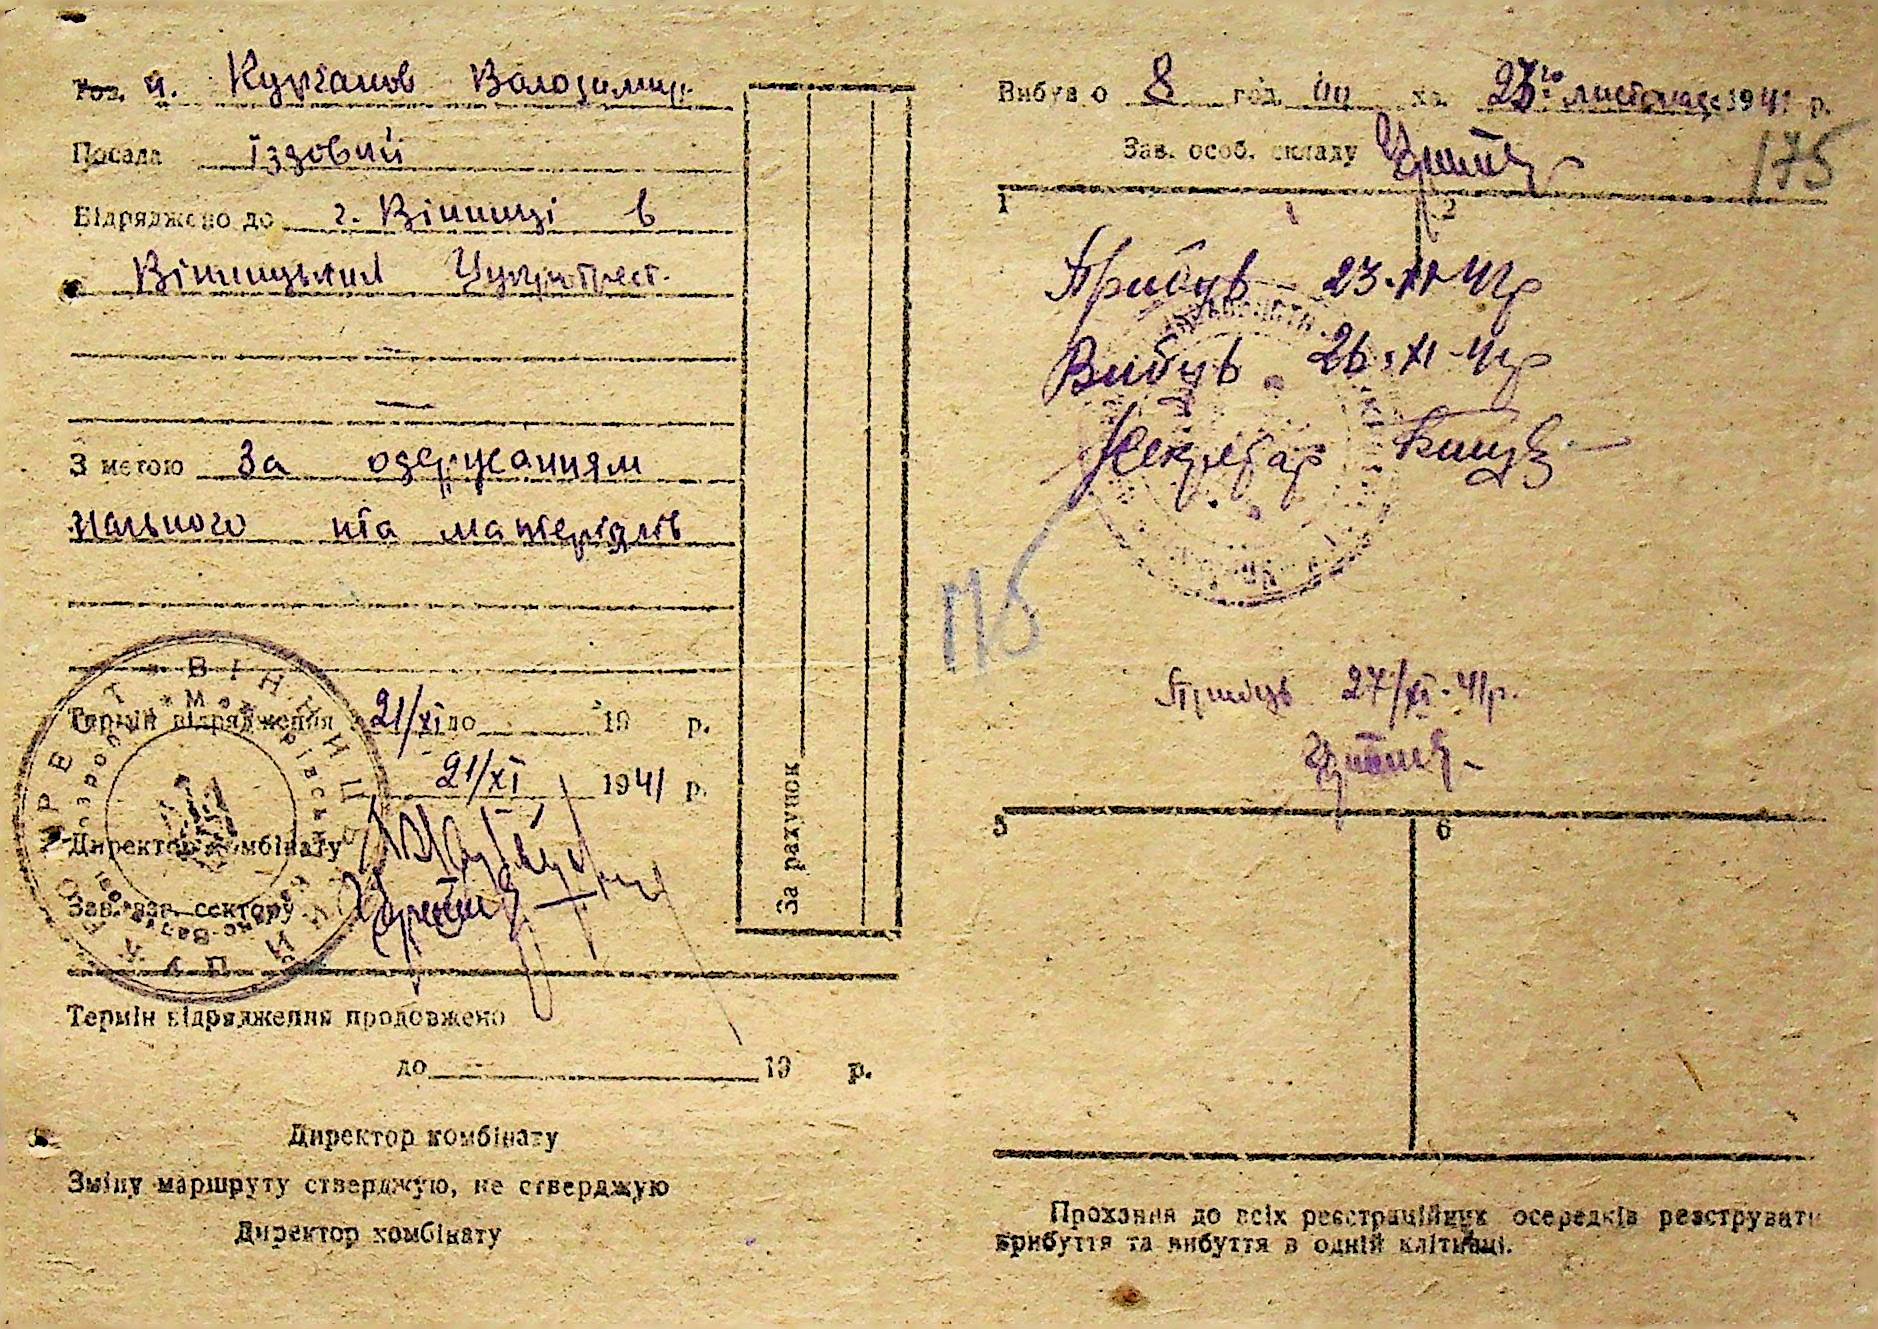 Тов. й. Курганов Володимир
Посада їздовий
Відряджено до г. Вінниці в
Вінницький Цукротрест.
З метою За одержанням
пального та матеріялів
Термін відрядження 21/XI до 19 р.
21/XI 1941 р.
Директор комбінату
Зав. сектору
ВІНИЦЬКИЙ ЦУКРОТРЕСТ
За рахунок
Термін відрядження продовжено
до 19 р.
Директор комбінату
Зміну маршруту стверджую, не стверджую
Директор комбінату
Вибув о 8 год. 00 хв. 23го листопада 1941 р.
Зав. особ. складу
175
1 2
Прибув 23.XI-41р
Вибув 26.XI-41р
Секретар
175
Прибув 27/XI-41р.
5 6
Прохання до всіх реєстраційних осередків реєструвати
прибуття та вибуття в одній клітинці.